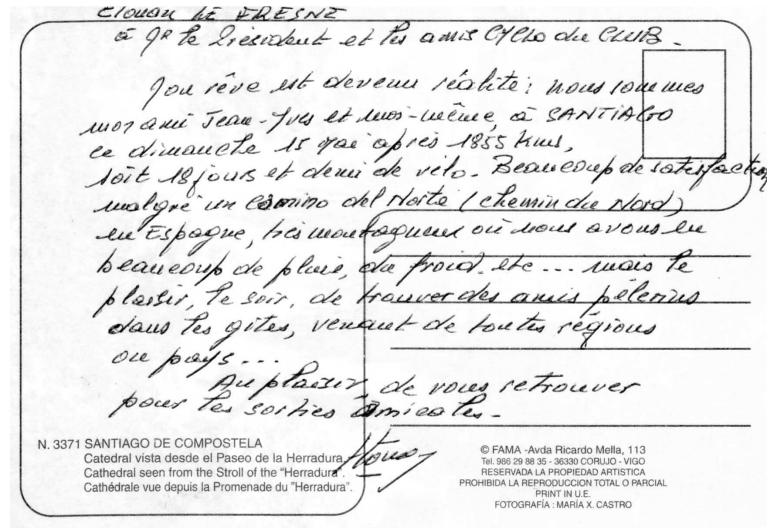 Elouan LE FRESNE
à Mr le Président et les amis Cyclo du CLUB.
Mon rêve est devenu réalité : nous sommes
mon ami Jean-Yves et moi-même, à SANTIAGO
ce dimanche 15 Mai après 1855 Kms,
soit 18 jours et demi de vélo. Beaucoup de satisfaction
malgré un Camino del Norte (chemin du Nord)
en Espagne, très montagneux où nous avons eu
beaucoup de pluie, du froid, etc... mais le
plaisir, le soir, de trouver des amis pélerins
dans les gîtes, venant de toutes régions
ou pays...
Au plaisir de vous retrouver
pour les sorties amicales.
N. 3371 SANTIAGO DE COMPOSTELA
Catedral vista desde el Paseo de la Herradura.
Cathedral seen from the Stroll of the "Herradura".
Cathédrale vue depuis la Promenade du "Herradura".
© FAMA -Avda Ricardo Mella, 113
Tel. 986 29 88 35 - 36330 CORUJO - VIGO
RESERVADA LA PROPIEDAD ARTISTICA
PROHIBIDA LA REPRODUCCION TOTAL O PARCIAL
PRINT IN U.E.
FOTOGRAFÍA : MARÍA X. CASTRO